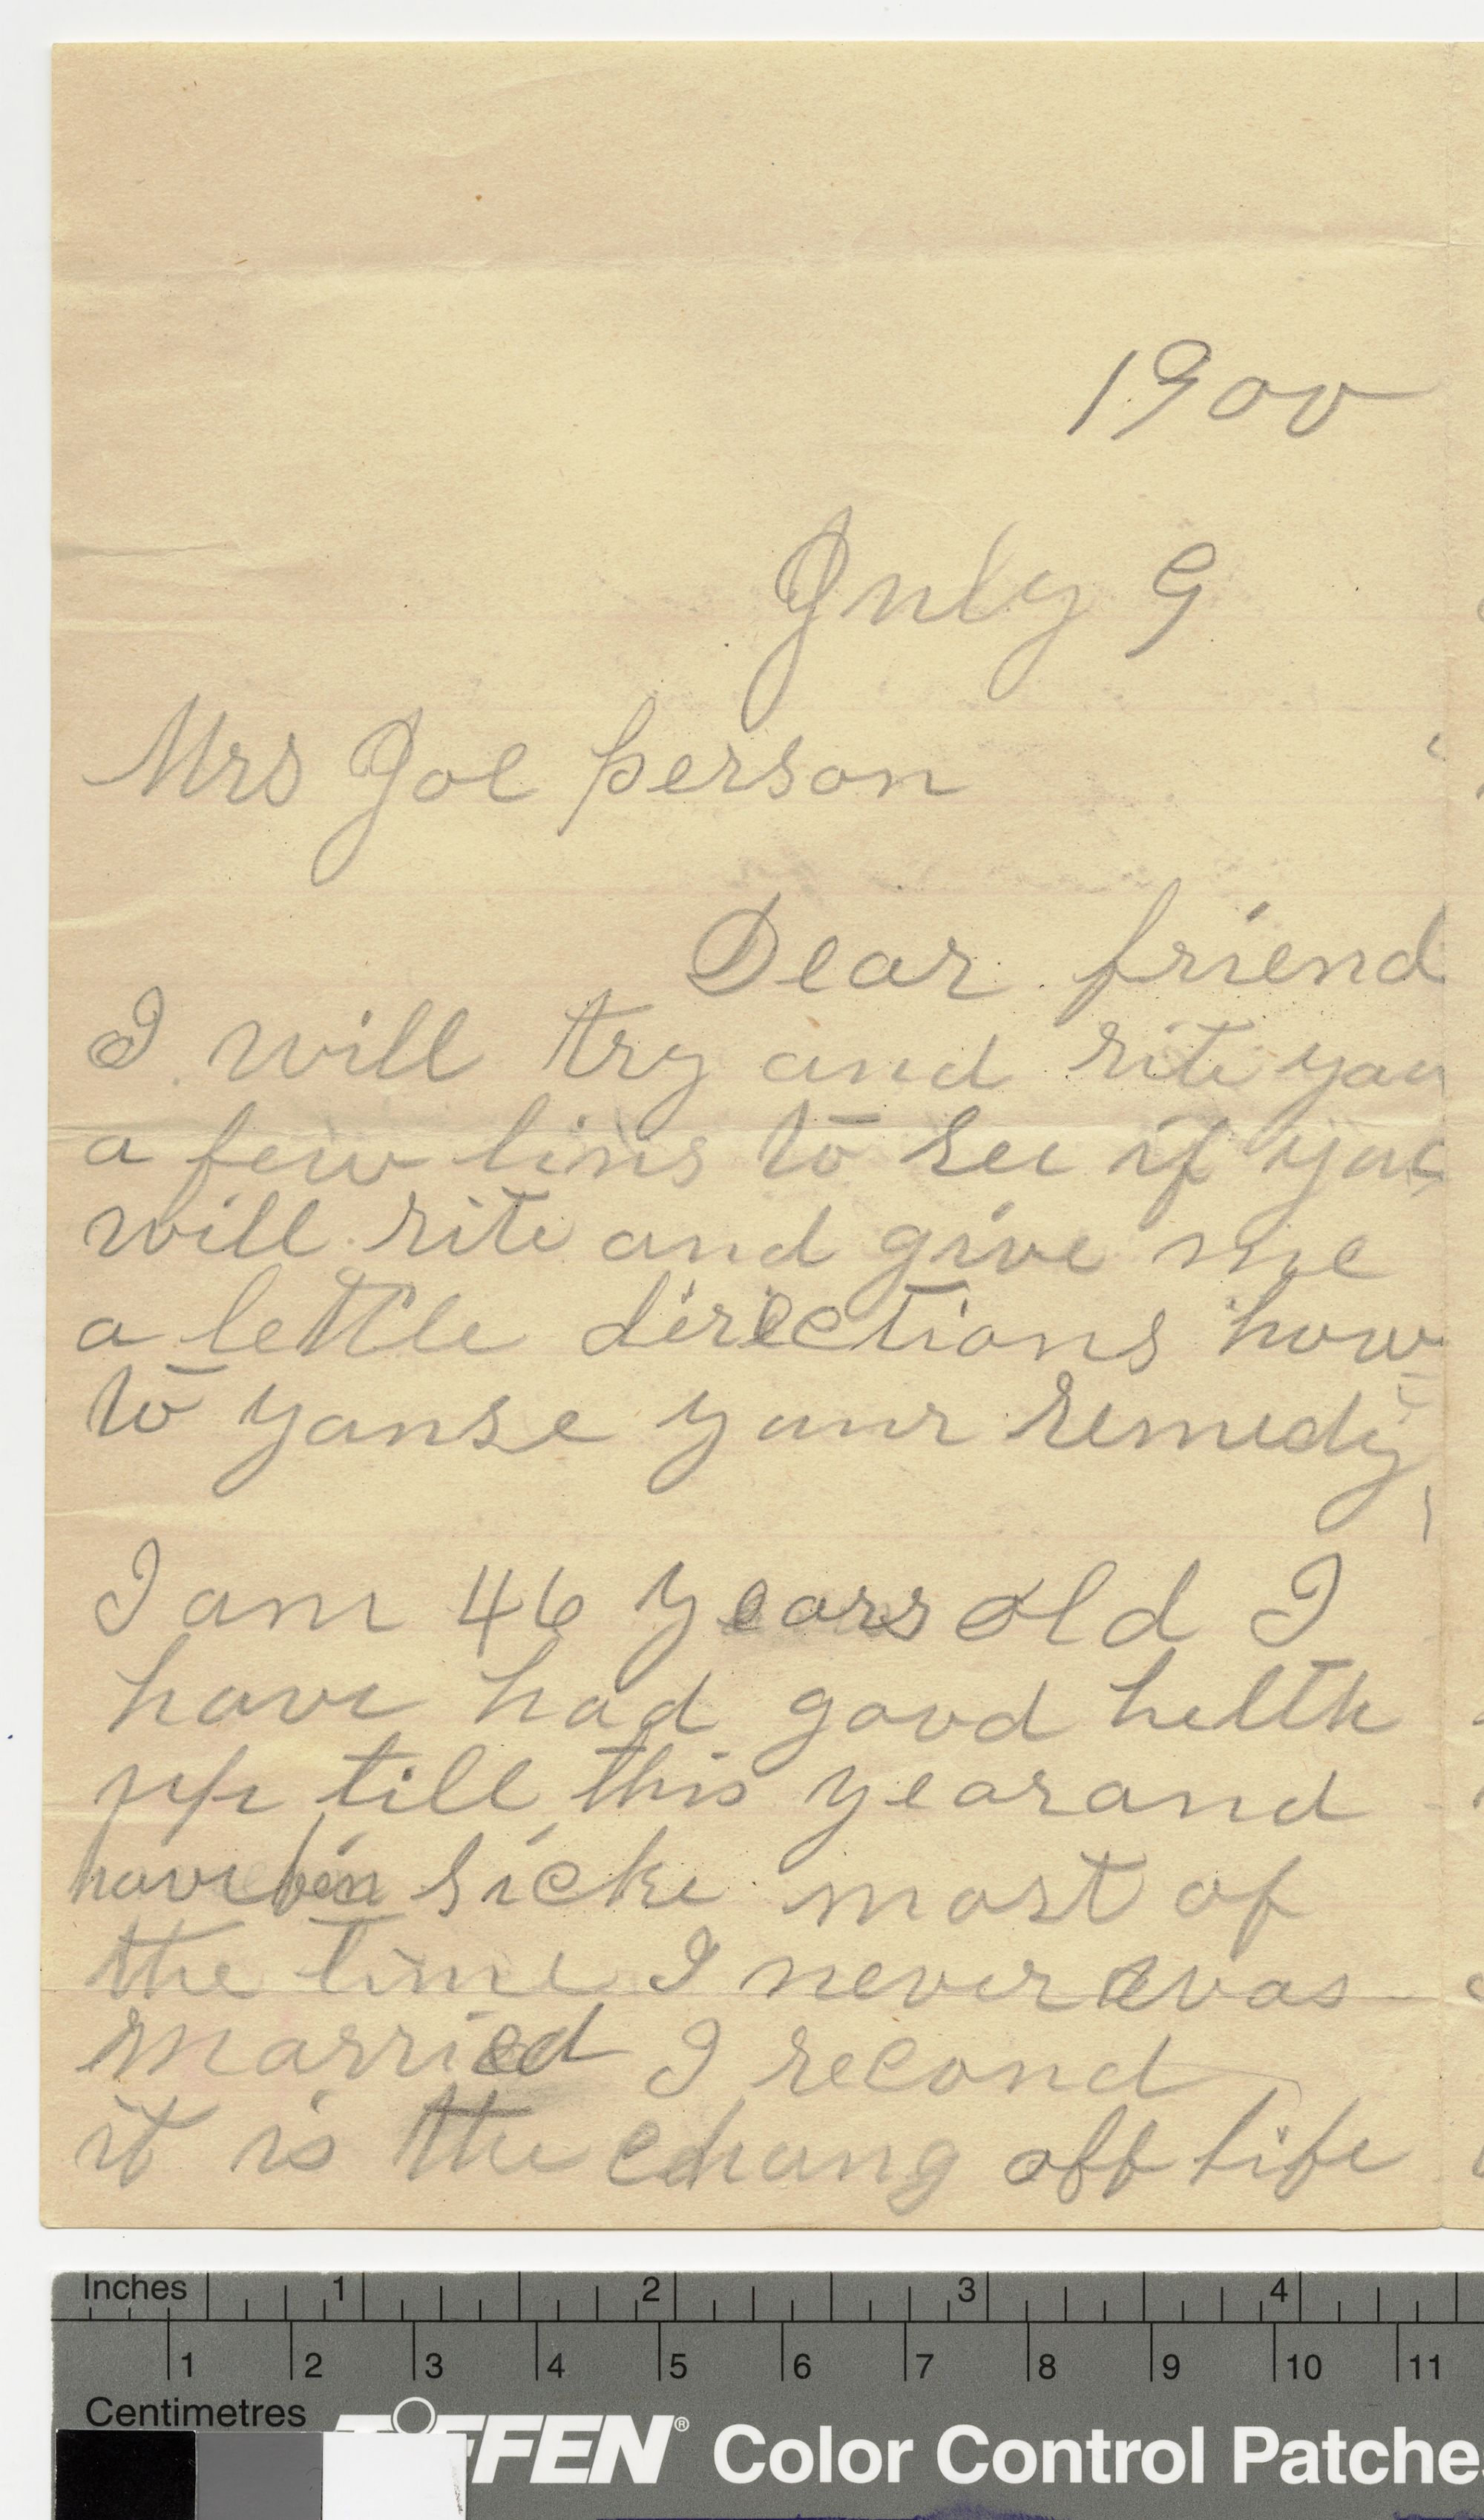 1900
July 9
Mrs Joe person
Dear friend
I will try and rite you
a few lins to see if you
will rite and give me
a lettle directions how
to youse your remedy
I am 46 years old I
have had good helth
up till this year and
have ben sicke most of
the time I never was
married I recond
it is the chang off life
Inches 1 2 3 4
1 2 3 4 5 6 7 8 9 10 11
Centimetres
TIFFEN® Color Control Patches